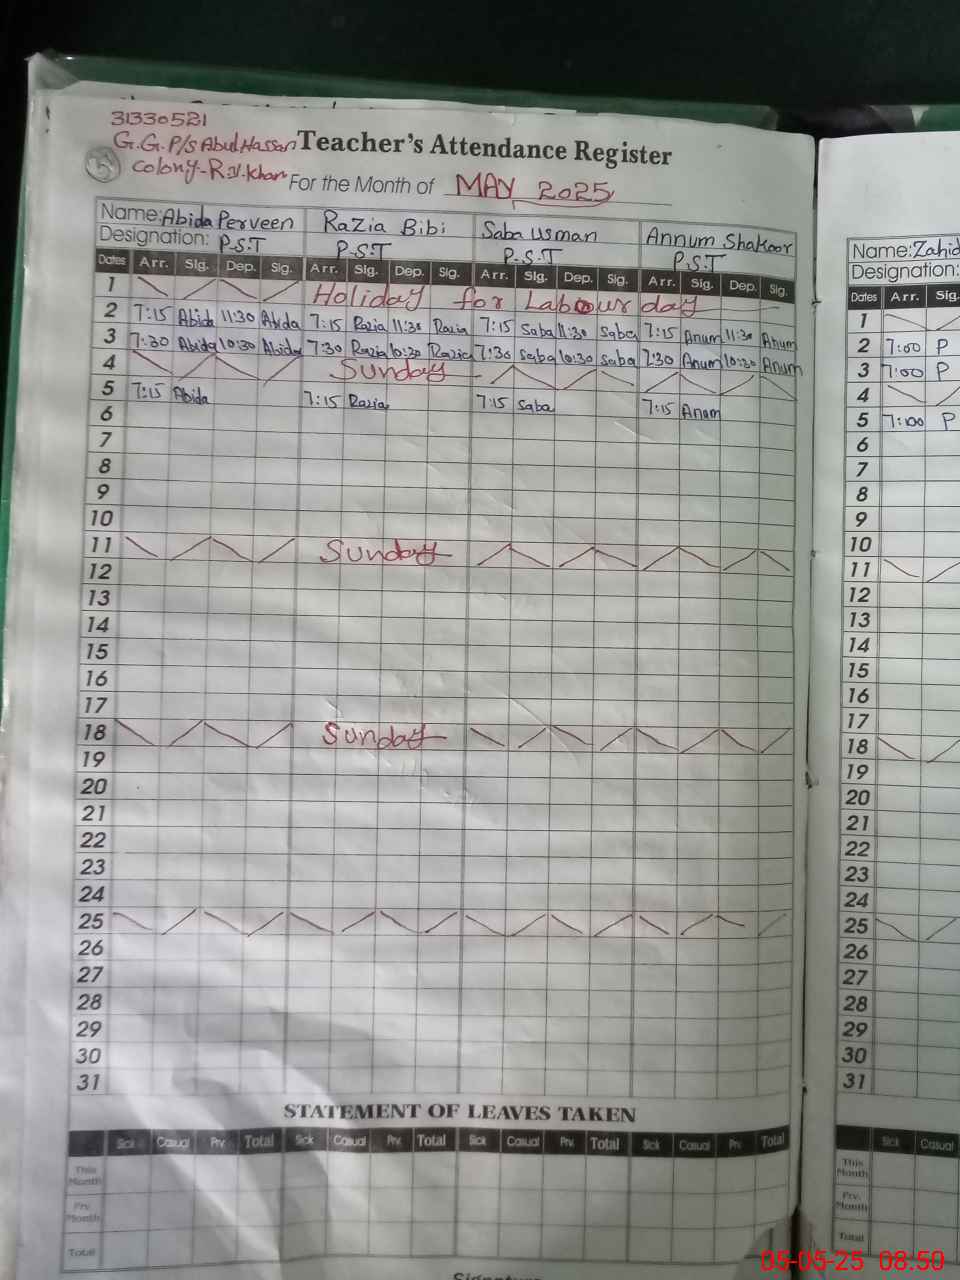 31330521
G.G.P/S Abul Hassan Teacher's Attendance Register
5 Colony-R.Y.Khan For the Month of MAY 2025
Name: Abida Perveen Razia Bibi Saba Usman Annum Shakoor
Designation: P.S.T P.S.T P.S.T P.S.T
Dates Arr. Sig. Dep. Sig. Arr. Sig. Dep. Sig. Arr. Sig. Dep. Sig. Arr. Sig. Dep. Sig.
1 Holiday for Labour day
2 7:15 Abida 11:30 Abida 7:15 Razia 11:30 Razia 7:15 Saba 11:30 Saba 7:15 Anum 11:30 Anum
3 7:30 Abida 10:30 Abida 7:30 Razia 10:30 Razia 7:30 Saba 10:30 Saba 7:30 Anum 10:30 Anum
4 Sunday
5 7:15 Abida 7:15 Razia 7:15 Saba 7:15 Anum
6
7
8
9
10
11 Sunday
12
13
14
15
16
17
18 Sunday
19
20
21
22
23
24
25
26
27
28
29
30
31
STATEMENT OF LEAVES TAKEN
Sick Casual Prv. Total Sick Casual Prv. Total Sick Casual Prv. Total Sick Casual Prv. Total
This Month
Prv. Month
Total
Name: Zahid
Designation:
Dates Arr. Sig.
1
2 7:00 P
3 7:00 P
4
5 7:00 P
6
7
8
9
10
11
12
13
14
15
16
17
18
19
20
21
22
23
24
25
26
27
28
29
30
31
Sick Casual
This Month
Prv. Month
Total
05-05-25 08:50